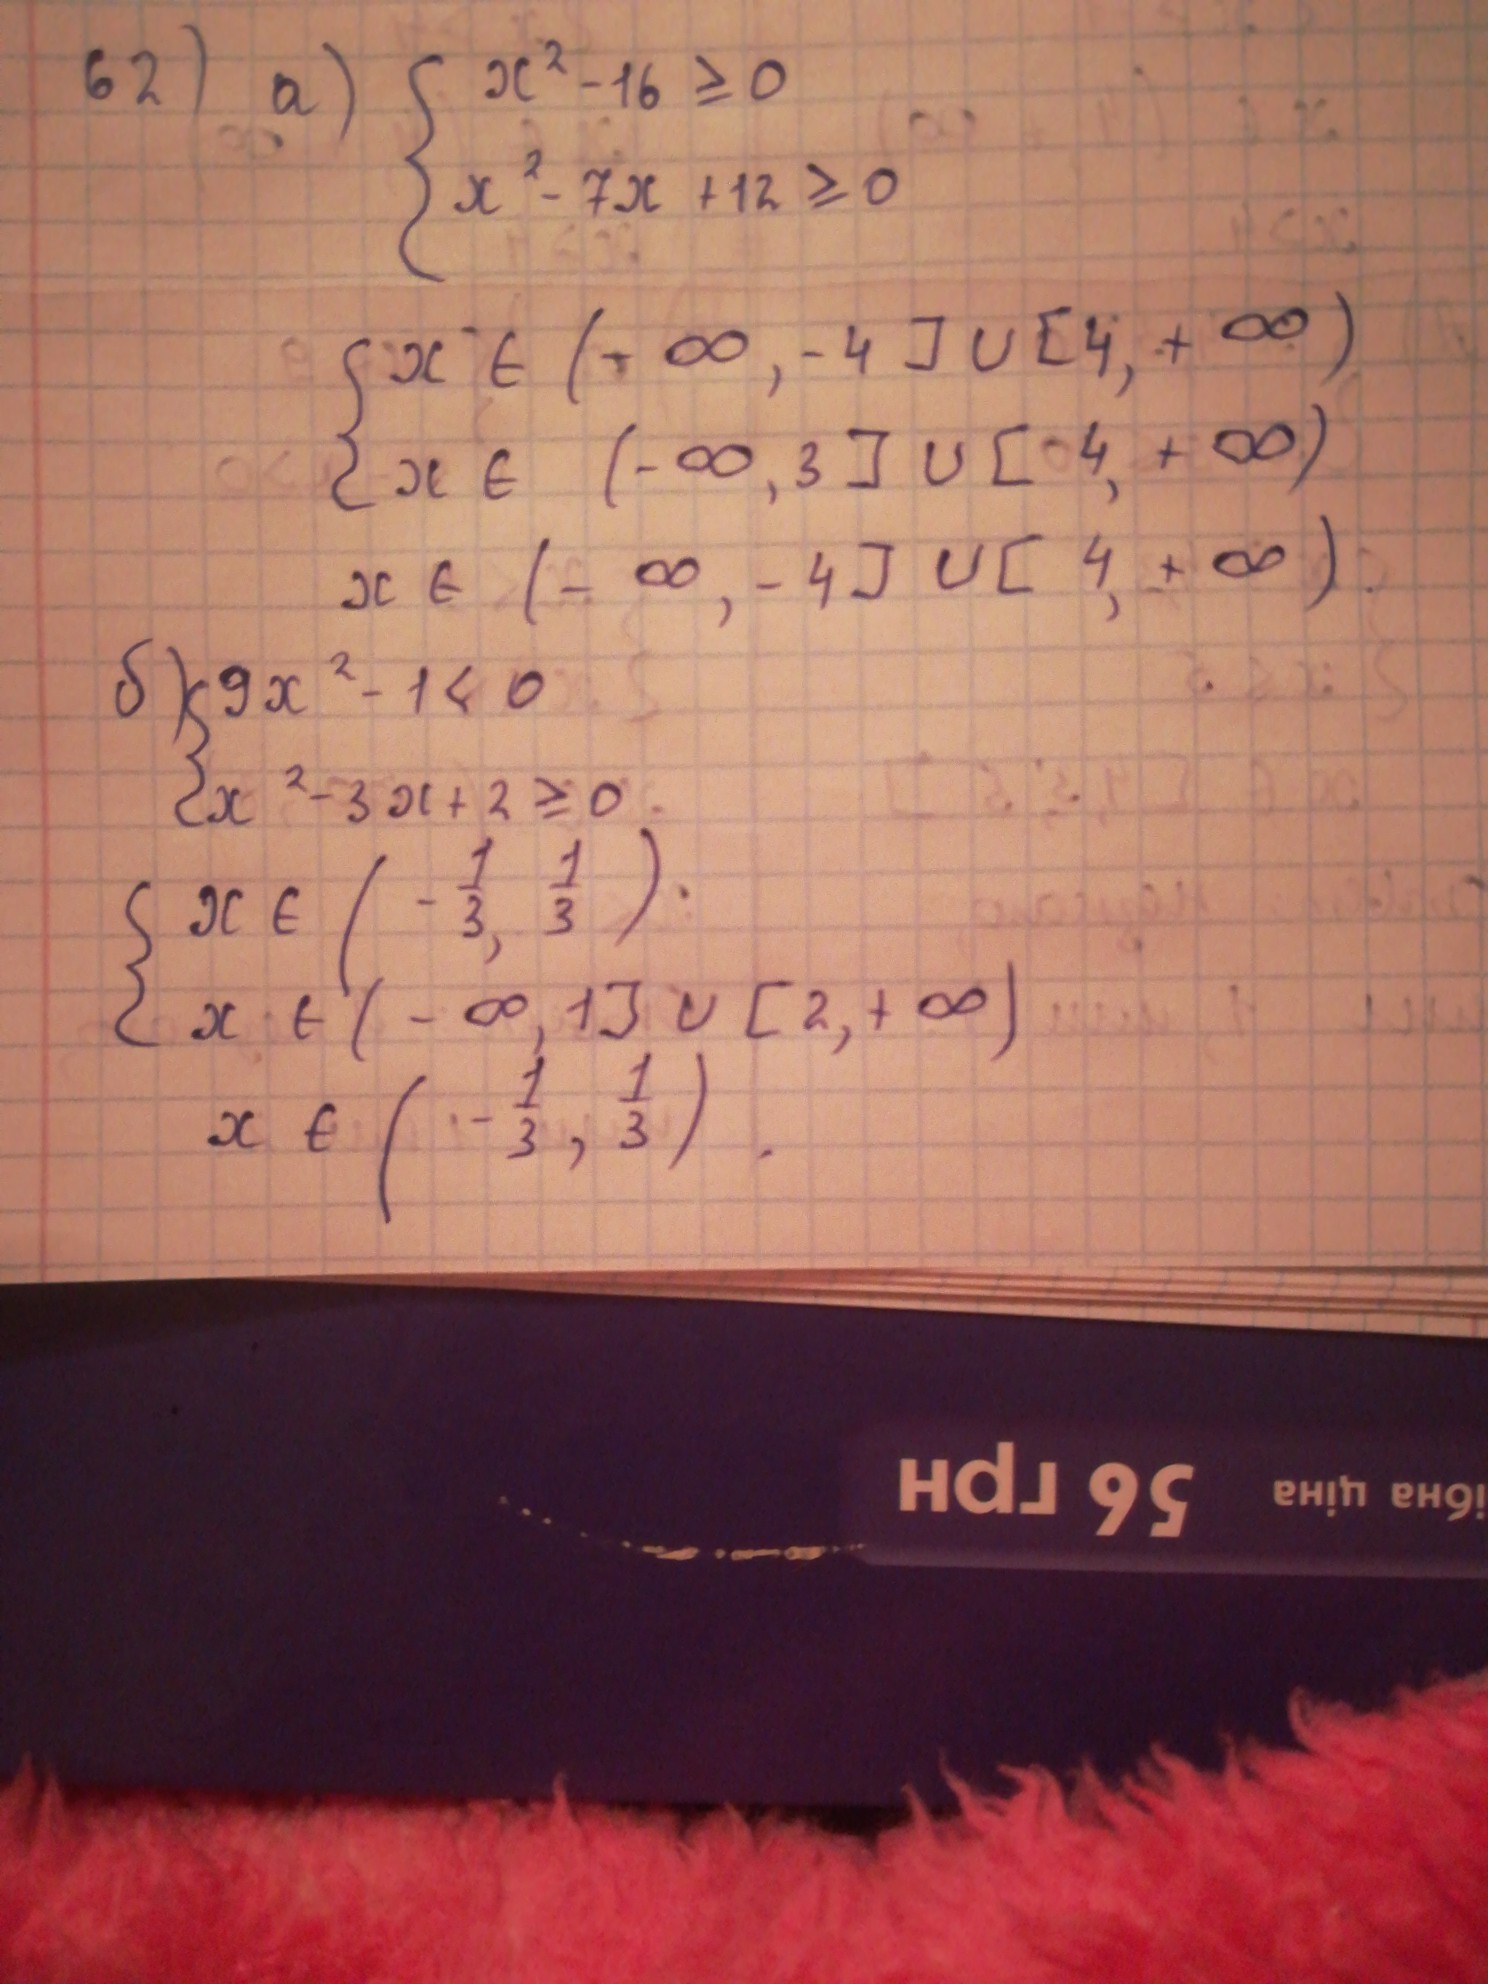 62) а) { x² - 16 ≥ 0
x² - 7x + 12 ≥ 0
{ x ∈ (+ ∞, - 4] ∪ [4, + ∞)
x ∈ (- ∞, 3] ∪ [4, + ∞)
x ∈ (- ∞, - 4] ∪ [4, + ∞).
б) { 9x² - 1 < 0
x² - 3x + 2 ≥ 0
{ x ∈ (- 1/3, 1/3)
x ∈ (- ∞, 1] ∪ [2, + ∞)
x ∈ (- 1/3, 1/3).
ібна ціна 56 грн